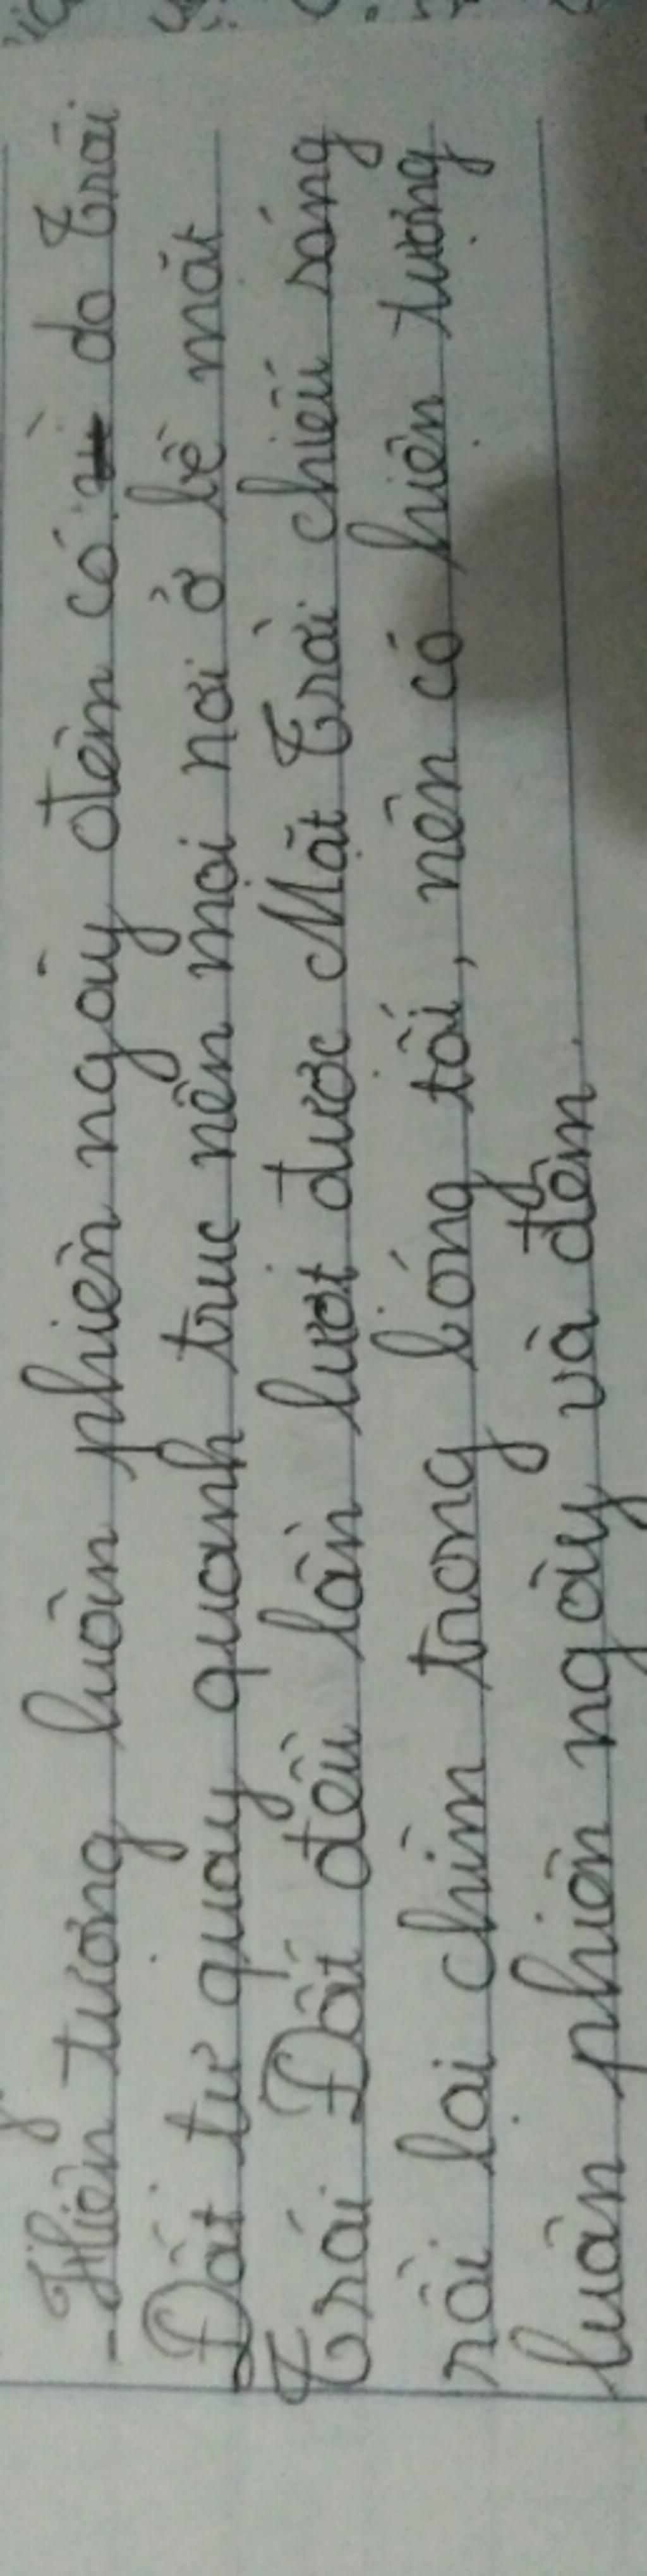 - Hiện tượng luân phiên ngày đêm có là do Trái
Đất tự quay quanh trục nên mọi nơi ở bề mặt
Trái Đất đều lần lượt được Mặt Trời chiếu sáng
rồi lại chìm trong bóng tối, nên có hiện tượng
luân phiên ngày và đêm.